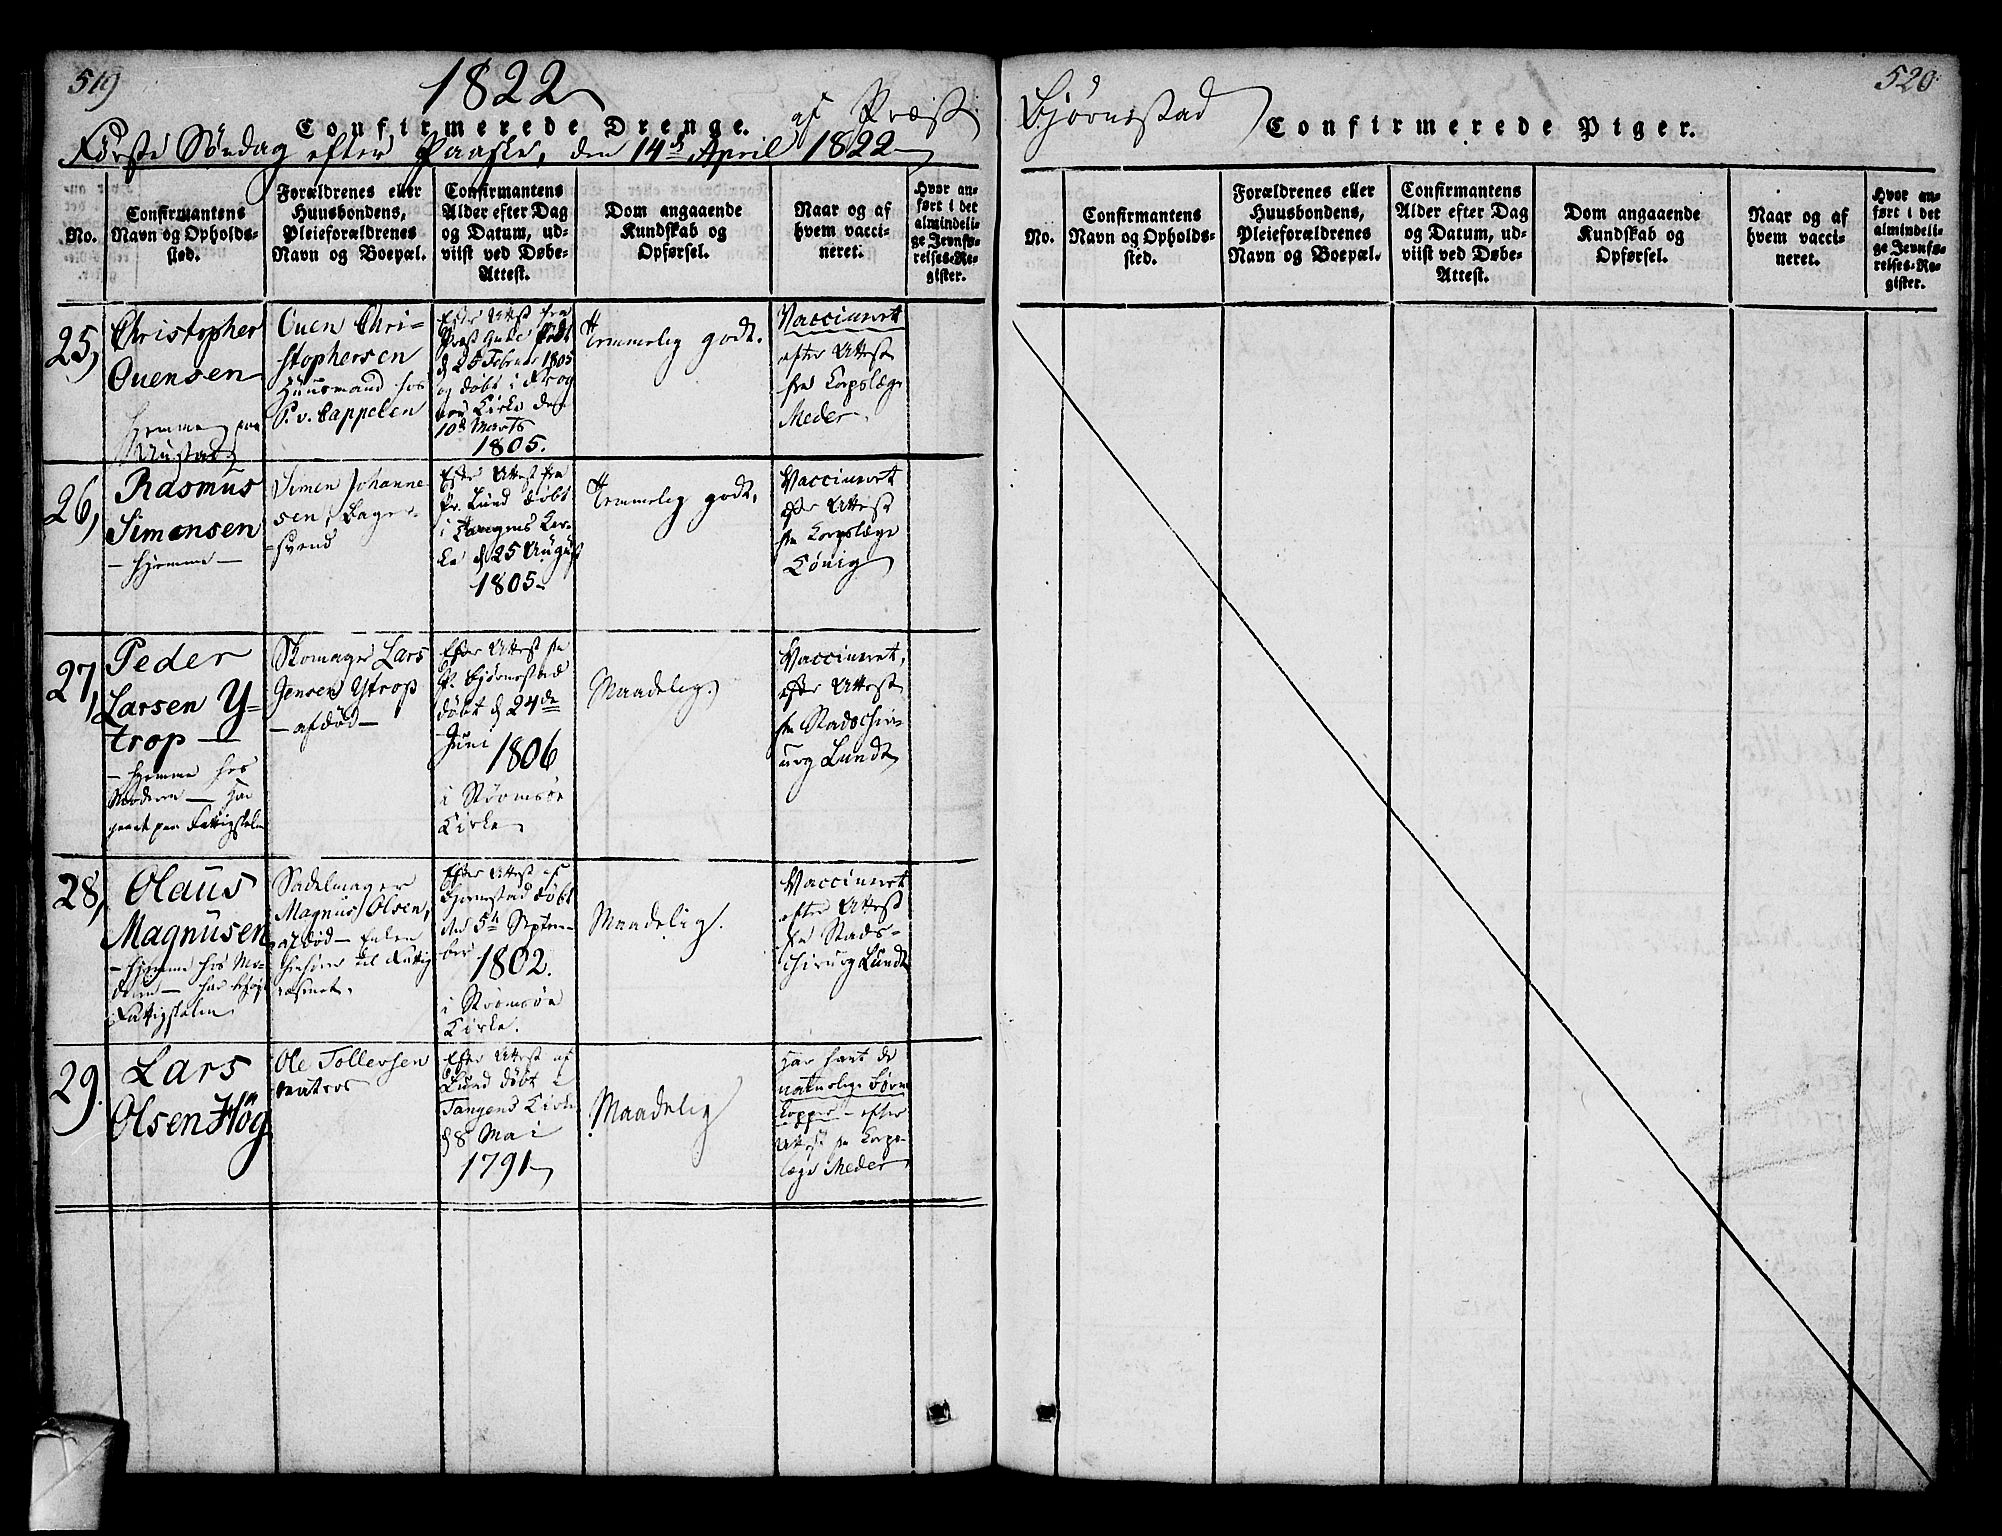 519
1822
Confirmerede Drenge.
af Præst
Første Söndag efter Paaske, den 14de April 1822
No.
Confirmantens
Navn og Opholds-
sted.
Forældrenes eller
Huusbondens,
Pleieforældrenes
Navn og Boepæl.
Confirmantens
Alder efter Dag
og Datum, ud-
viist ved Døbe-
Attest.
Dom angaaende
Kundskab og
Opførsel.
Naar og af
hvem vacci-
neret.
Hvor an-
ført i det
almindeli-
ge Jevnfø-
relses-Re-
gister.
25,
Christopher
Ouensen
hjemme paa
Ouen Chri-
stophersen
Huusmand hos
P. v. Cappelen
Efter Attest fra
Præst født
d 25 Februar 1805
og døbt i Krog
Kirke den
10de Marts
1805.
Temmelig godt.
Vaccineret
efter Attest
fra Corpslæge
Meder.
26,
Rasmus
Simensen
– hjemme –
Simen Johanne
sen, Bager-
svend
Efter Attest fra
Pr. Lund døbt
i Tangens Kir-
ke d 25 August
1805.
Temmelig godt.
Vaccineret
efter Attest
fra Corpslæge
König
27,
Peder
Larsen Y-
trop –
– hjemme hos
Moderen –
gaaet paa Fattigskolen
Skomager Lars
Jensen Ytrop
– afdød –
Efter Attest fra
P. Bjørnestad
døbt d 24de
Juni
1806
i Strømsøe
Kirke
Maadelig.
Vaccineret,
efter Attest
fra Stadschir-
urg Lundt
28,
Olaus
Magnusen
– hjemme hos Mo-
deren – har besøgt
Fattigskolen
Sadelmager
Magnus Olsen,
afdød – Enken
henhører til Fattig
væsenet.
Efter Attest af
Bjørnestad døbt
den 5te Septem-
ber
1802.
i Strømsøe
Kirke.
Maadelig.
Vaccineret
efter Attest
fra Stads-
chirurg Lundt
29.
Lars
Olsen Hög
Ole Tollersen
Matros
Efter Attest af
Lund døbt i
Tangens Kirke
d 8 Mai
1791
Maadelig
Har havt de
naturlige Børne
kopper – efter
Attest fra Corps-
læge Meder
520
Bjørnestad
Confirmerede Piger.
No.
Confirmantens
Navn og Opholds-
sted.
Forældrenes eller
Huusbondens,
Pleieforældrenes
Navn og Boepæl.
Confirmantens
Alder efter Dag
og Datum, ud-
viist ved Døbe-
Attest.
Dom angaaende
Kundskab og
Opførsel.
Naar og af
hvem vacci-
neret.
Hvor an-
ført i det
almindeli-
ge Jevnfø-
relses-Re-
gister.